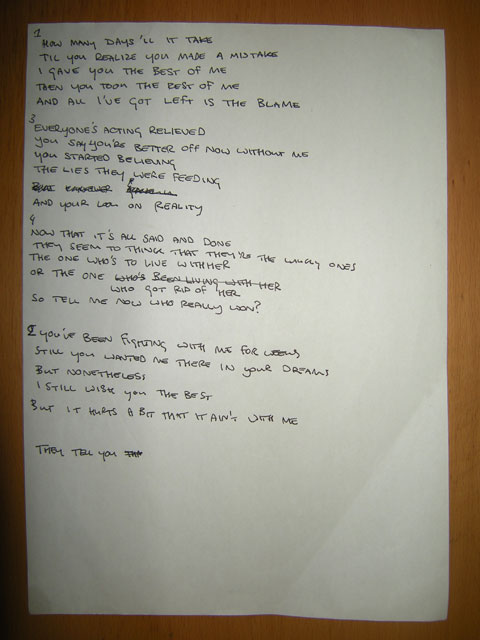 1
HOW MANY DAYS'LL IT TAKE
TIL YOU REALIZE YOU MADE A MISTAKE
I GAVE YOU THE BEST OF ME
THEN YOU TOOK THE BEST OF ME
AND ALL I'VE GOT LEFT IS THE BLAME
3
EVERYONE'S ACTING RELIEVED
YOU SAY YOU'RE BETTER OFF NOW WITHOUT ME
YOU STARTED BELIEVING
THE LIES THEY WERE FEEDING
AND YOUR ON REALITY
4
NOW THAT IT'S ALL SAID AND DONE
THEY SEEM TO THINK THAT THEY'RE THE LUCKY ONES
THE ONE WHO'S TO LIVE WITH HER
OR THE ONE WHO'S BEEN LIVING WITH HER
WHO GOT RID OF HER
SO TELL ME NOW WHO REALLY WON?
2 YOU'VE BEEN FIGHTING WITH ME FOR WEEKS
STILL YOU WANTED ME THERE IN YOUR DREAMS
BUT NONETHELESS
I STILL WISH YOU THE BEST
BUT IT HURTS A BIT THAT IT AIN'T WITH ME
THEY TELL YOU